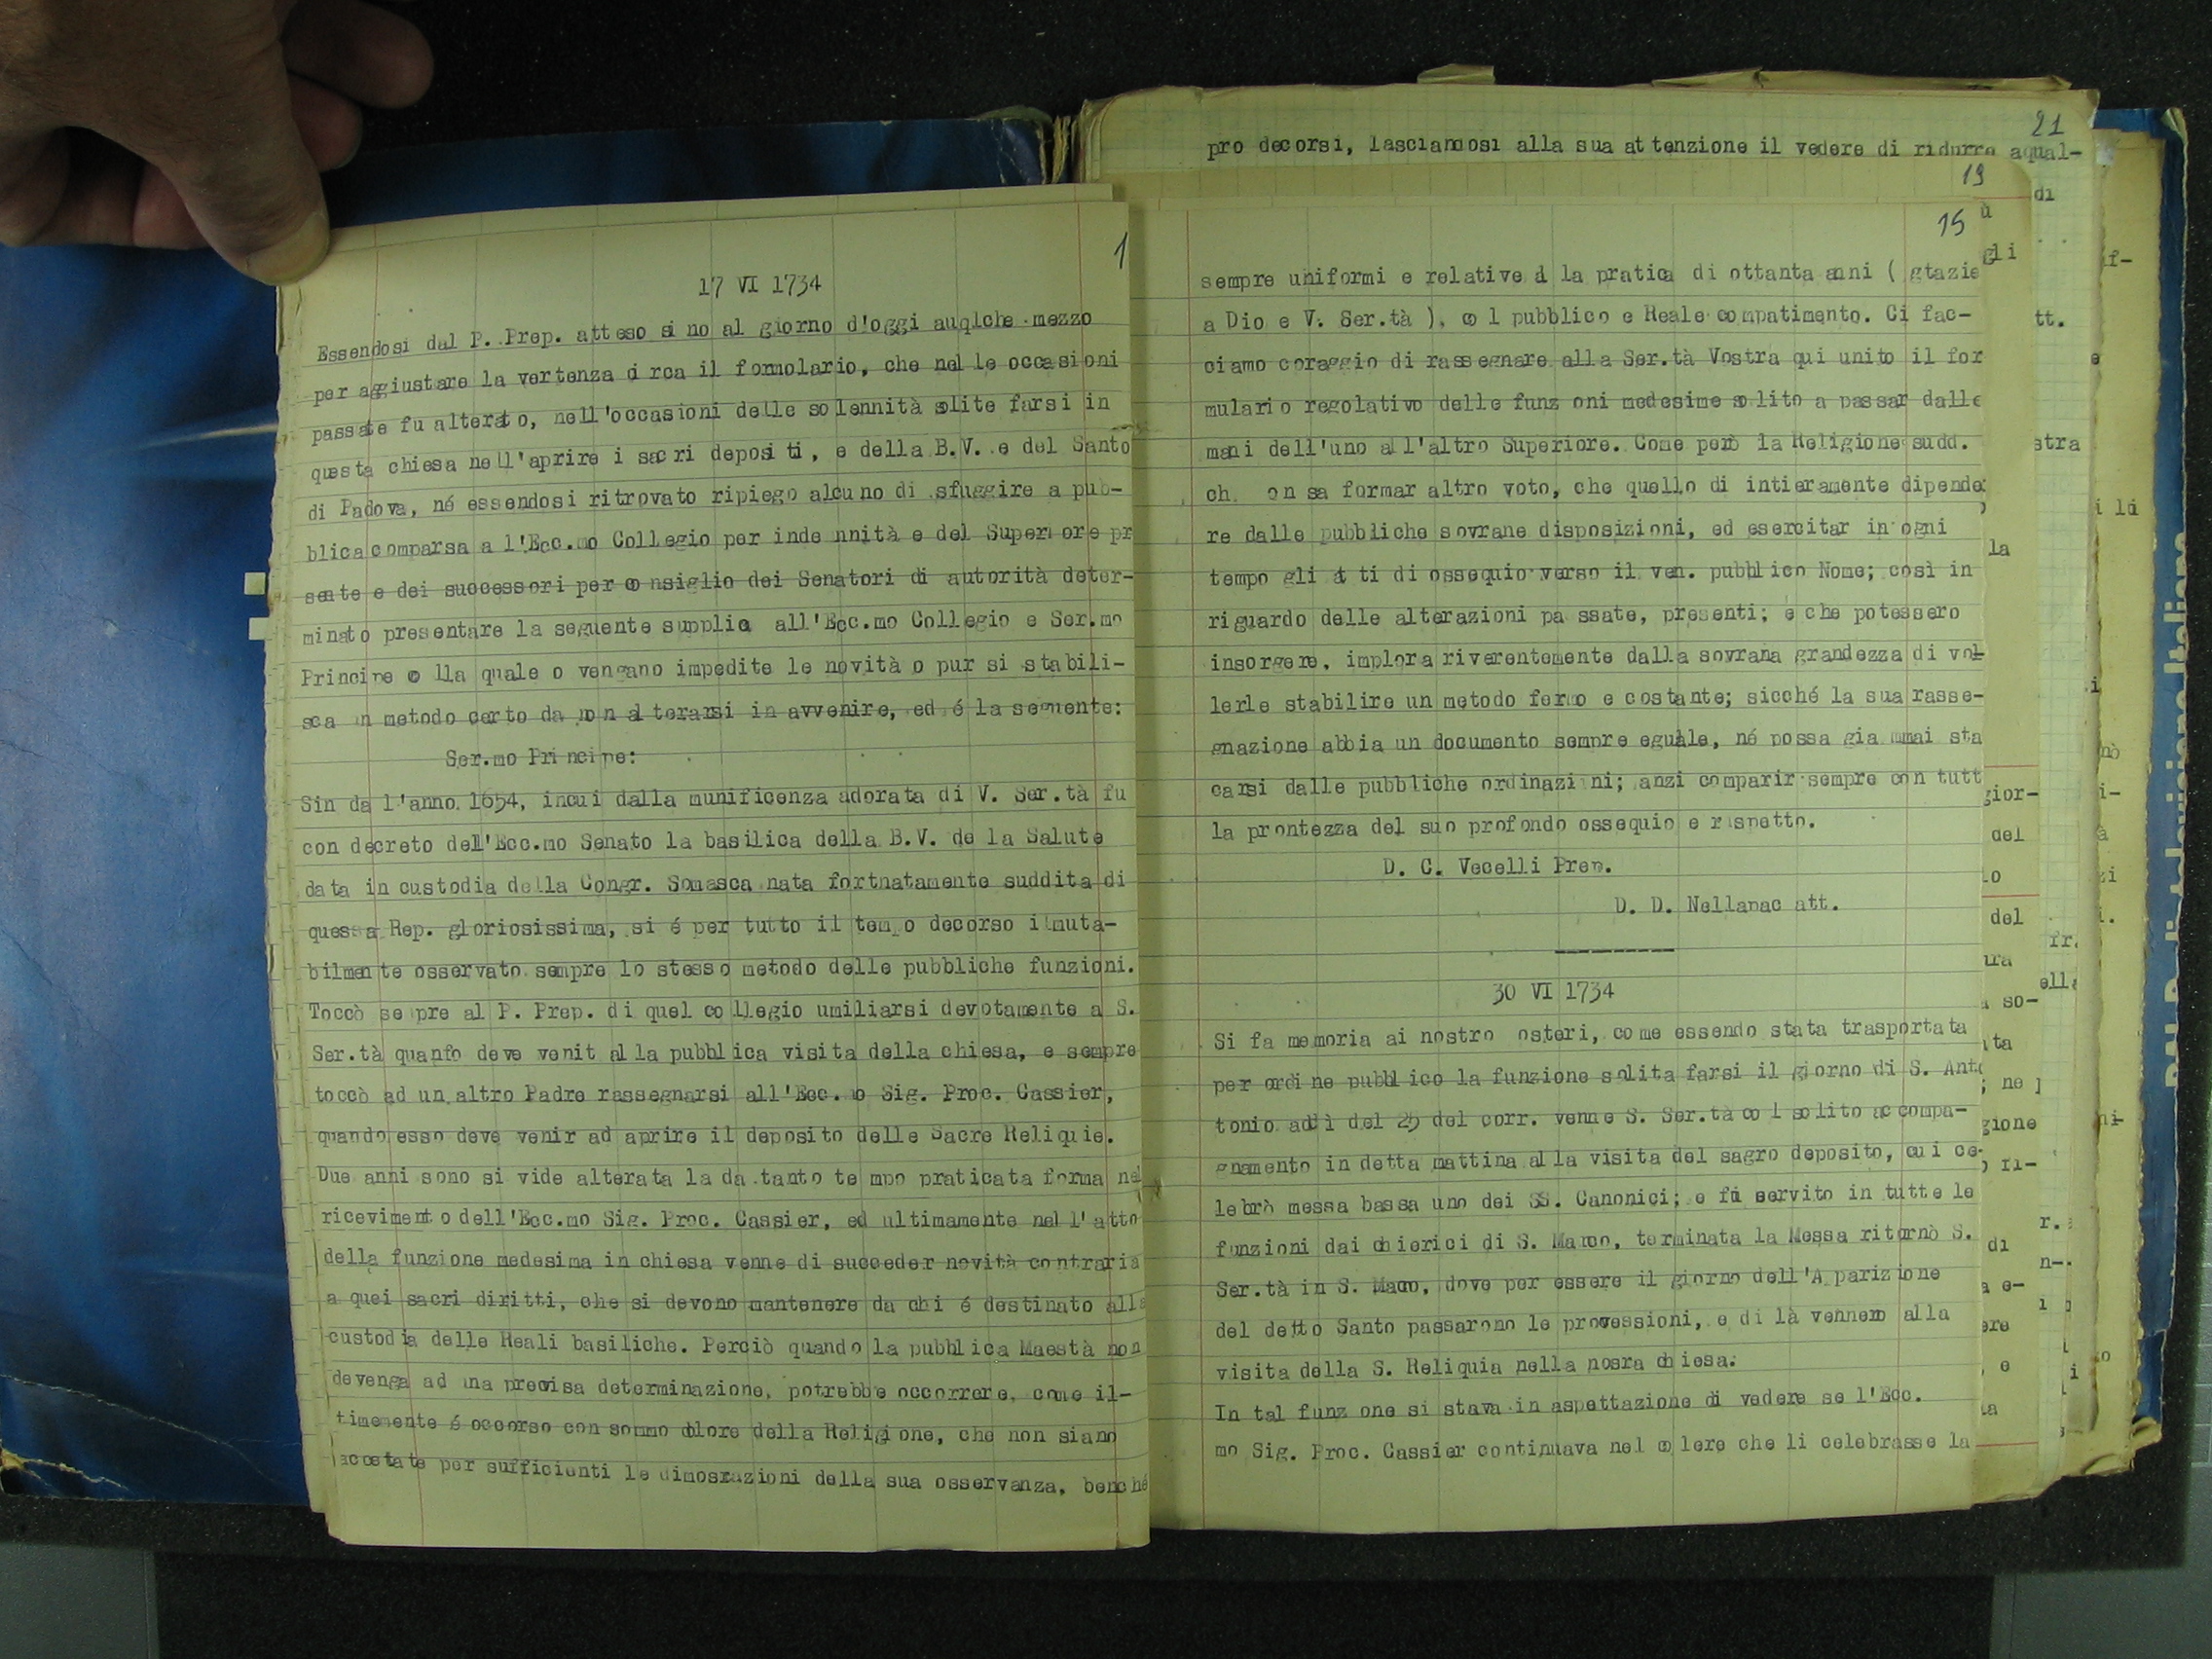 1
17 VI 1734
Essendosi dal P. Prep. atteso si no al giorno d'oggi auqlche mezzo
per aggiustare la vertenza ci rca il formolario, che nel le occasioni
passate fu alterato, nell'occasioni delle solennità solite farsi in
questa chiesa nell'aprire i sacri depositi, e della B.V. e del Santo
di Padova, né essendosi ritrovato ripiego alcuno di sfuggire a pub-
blica comparsa a l'Ecc.mo Collegio per inde nnità e del Superi ore pr
sente e dei successori per co nsiglio dei Senatori di autorità deter-
minato presentare la seguente supplica all'Ecc.mo Collegio e Ser.mo
Principe co lla quale o vengano impedite le novità o pur si stabili-
sca un metodo certo da non al terarsi in avvenire, ed é la seguente:
Ser.mo Principe:
Sin da l'anno 1654, incui dalla munificenza adorata di V. Ser.tà fu
con decreto dell'Ecc.mo Senato la basilica della B.V. de la Salute
data in custodia della Congr. Somasca nata fortnatamente suddita di
questa Rep. gloriosissima, si é per tutto il tempo decorso immuta-
bilmente osservato sempre lo stesso metodo delle pubbliche funzioni.
Toccò se pre al P. Prep. di quel collegio umiliarsi devotamente a S.
Ser.tà quanfo deve venit alla pubblica visita della chiesa, e sempre
toccò ad un altro Padre rassegnarsi all'Ecc. o Sig. Proc. Cassier,
quando esso deve venir ad aprire il deposito delle Sacre Reliquie.
Due anni sono si vide alterata la da tanto te mpo praticata forma nel
ricevimento dell'Ecc.mo Sig. Proc. Cassier, ed ultimamente nell'atto
della funzione medesima in chiesa venne di succeder novità contraria
a quei sacri diritti, che si devono mantenere da chi é destinato alla
custodia delle Reali basiliche. Perciò quando la pubblica Maestà non
devenga ad una precisa determinazione, potrebbe occorrere, come il-
timemente é occorso con sommo dolore della Religione, che non siano
accetate per sufficienti le dimosrazioni della sua osservanza, benché
21
pro decorsi, lasciandosi alla sua attenzione il vedere di ridurre aqual-
19
15
sempre uniformi e relative al la pratica di ottanta anni ( gtazie
a Dio e V. Ser.tà ), co l pubblico e Reale compatimento. Ci fac-
ciamo coraggio di rassegnare alla Ser.tà Vostra qui unito il for
mulario regolativo delle funz oni medesime solito a passar dalle
mani dell'uno all'altro Superiore. Come però la Religione sudd.
ch on sa formar altro voto, che quello di intieramente dipende
re dalle pubbliche sovrane disposizioni, ed esercitar in ogni
tempo gli at ti di ossequio verso il ven. pubblico Nome; così in
riguardo delle alterazioni pa ssate, presenti; e che potessero
insorgere, implora riverentemente dalla sovrana grandezza di vol-
lerle stabilire un metodo fermo e costante; sicché la sua rasse-
gnazione abbia un documento sempre eguale, né possa gia mmai sta
carsi dalle pubbliche ordinazi ni; anzi comparir sempre con tutt
la prontezza del suo profondo ossequio e rispetto.
D. C. Vecelli Prep.
D. D. Nellapac att.
30 VI 1734
Si fa memoria ai nostro osteri, come essendo stata trasportata
per ordi ne pubblico la funzione solita farsi il giorno di S. Ant
tonio addì del 25 del corr. venne S. Ser.tà co l solito accompa-
gnamento in detta mattina alla visita del sagro deposito, cui ce-
lebrò messa bassa uno dei SS. Canonici; e fu servito in tutte le
funzioni dai chierici di S. Marco, terminata la Messa ritornò S.
Ser.tà in S. Maco, dove per essere il giorno dell'A parizione
del detto Santo passarono le provessioni, e di là vennero alla
visita della S. Reliquia nella nosra chiesa.
In tal funz one si stava in aspettazione di vedere se l'Ecc.
mo Sig. Proc. Cassier continuava nel co lere che li celebrasse la